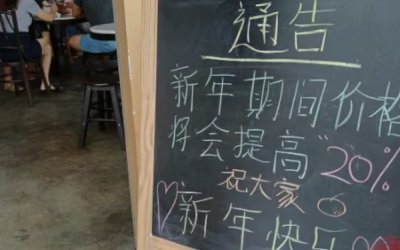 通告
新年期间价格
将会提高"20%
祝大家
新年快乐